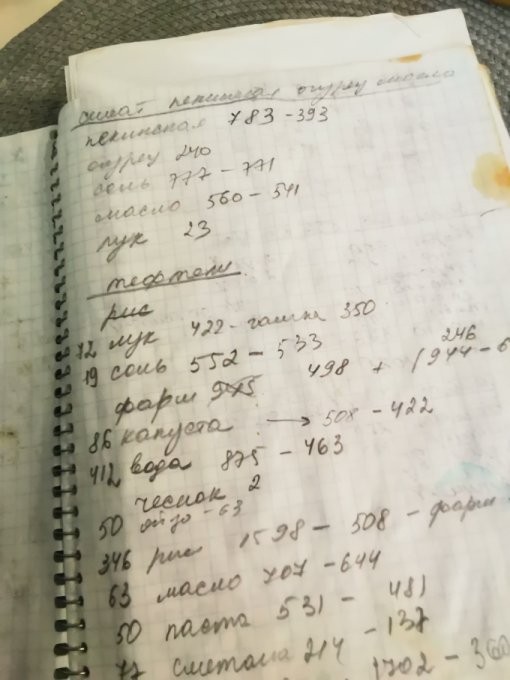 салат пекинская огурец масло
пекинская 783 - 393
огурец 240
соль 777 - 771
масло 560 - 541
лук 23
тефтели
рис
72 лук 422 - гашпа 350
19 соль 552 - 533
246
фарш 945 498 + (944 - 6
86 капуста → 508 - 422
412 вода 875 - 463
чеснок 2
50 яйцо - 63
346 рис 1598 - 508 - фарш
63 масло 707 - 644
50 паста 531 - 481
77 сметана 214 - 137
1702 - 360